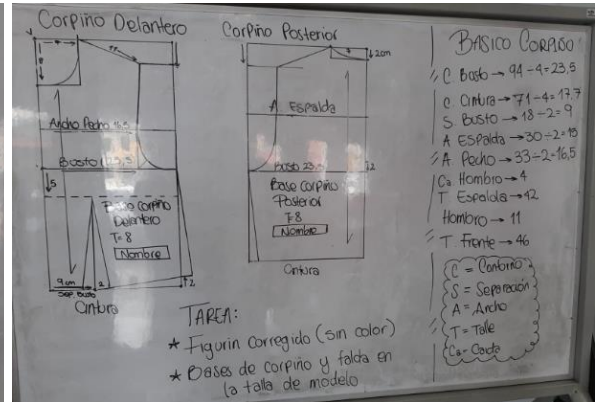 Corpiño Delantero
11
Ancho Pecho 16,5
Busto 23,5
5
Base Corpiño
Delantero
T= 8
Nombre
9 cm
2
2
Sep. Busto
Cintura
Corpiño Posterior
2cm
A. Espalda
Busto 23,5
2
Base Corpiño
Posterior
T- 8
Nombre
Cintura
TAREA:
* Figurin Corregido (sin color)
* Bases de corpiño y falda en
la talla de modelo
BASICO CORPIÑO
C Busto → 94 ÷ 4 = 23,5
C. Cintura → 71 ÷ 4 = 17,7
S. Busto → 18 ÷ 2 = 9
A Espalda → 30 ÷ 2 = 15
A. Pecho → 33 ÷ 2 = 16,5
Ca. Hombro → 4
T. Espalda → 42
Hombro → 11
T. Frente → 46
C = Contorno
S = Separación
A = Ancho
T = Talle
Ca = Caida